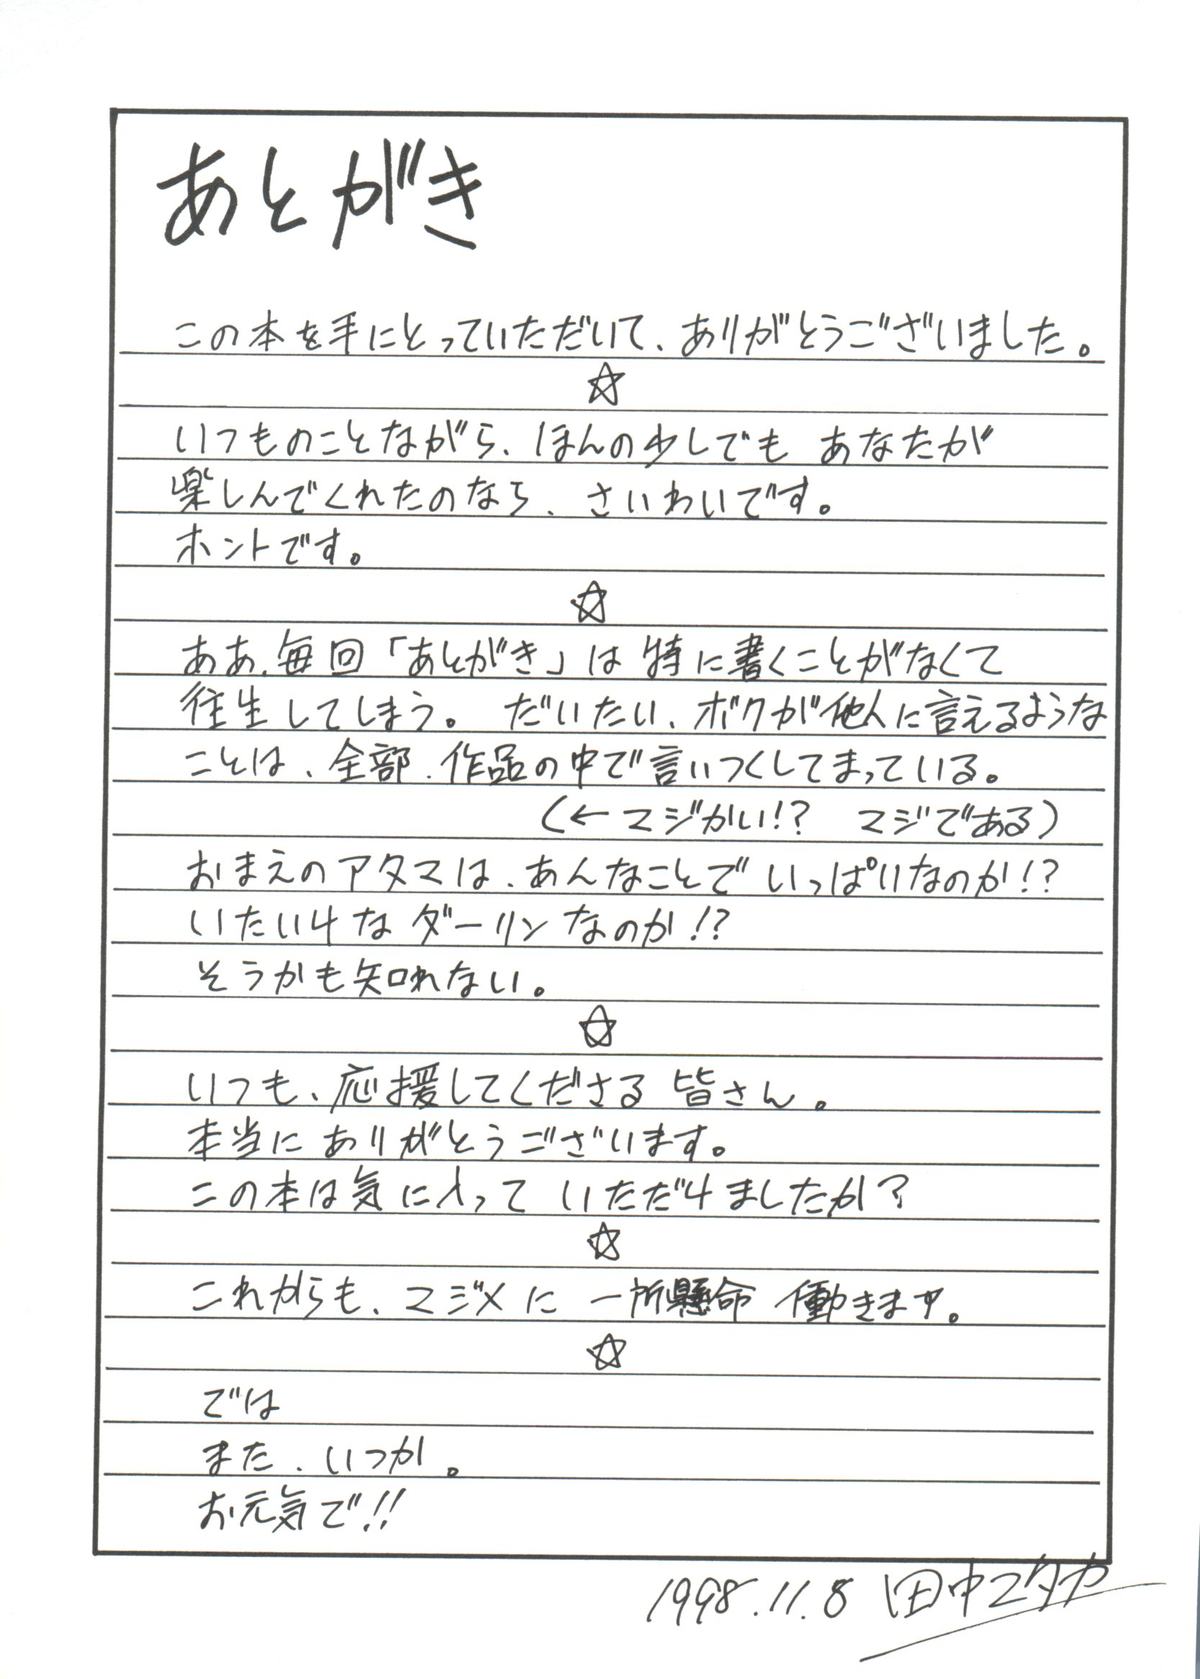 あとがき
この本を手にとっていただいて、ありがとうございました。
☆
いつものことながら、ほんの少しでも あなたが
楽しんでくれたのなら、さいわいです。
ホントです。
☆
ああ、毎回「あとがき」は特に書くことがなくて
往生してしまう。 だいたい、ボクが他人に言えるような
ことは、全部、作品の中で言いつくしてまっている。
(←マジかい!? マジである)
おまえのアタマは、あんなことで いっぱいなのか!?
いたいけなダーリンなのか!?
そうかも知れない。
☆
いつも、応援してくださる 皆さん。
本当に ありがとうございます。
この本は気に入って いただけましたか?
☆
これからも、マジメに 一所懸命 働きます。
☆
では
また、いつか。
お元気で!!
1998.11.8 田中ユタカ